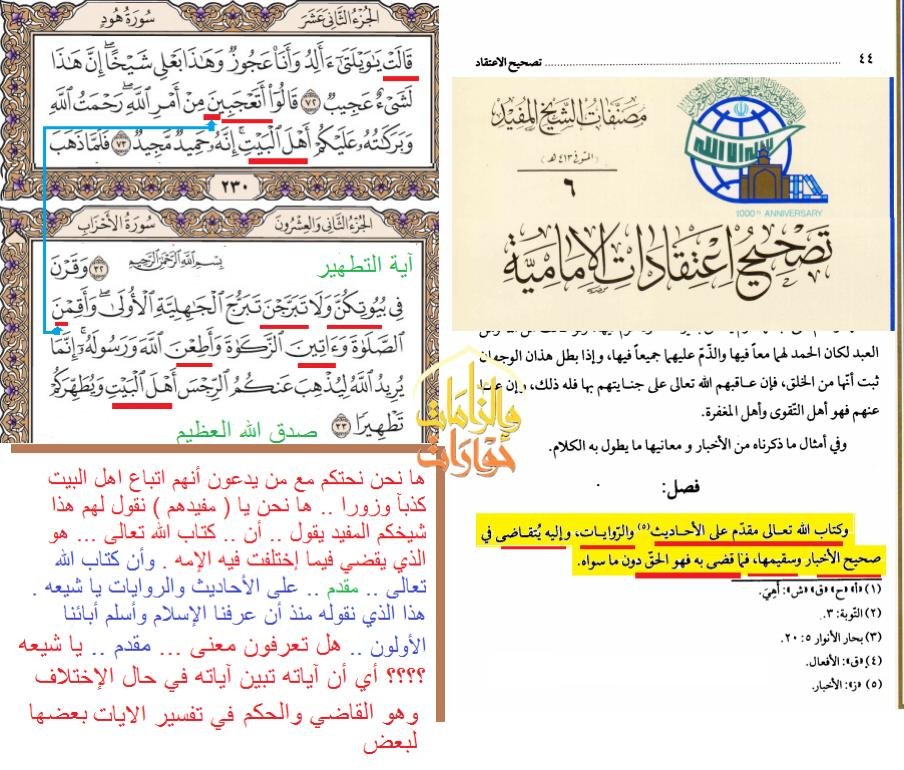 سُورَةُ هُودٍ
الجُزْءُ الثَّانِي عَشَرَ
قَالَتْ يَٰوَيْلَتَىٰٓ ءَأَلِدُ وَأَنَا۠ عَجُوزٌ وَهَٰذَا بَعْلِى شَيْخًا ۖ إِنَّ هَٰذَا
لَشَىْءٌ عَجِيبٌ ٧٢ قَالُوٓا۟ أَتَعْجَبِينَ مِنْ أَمْرِ ٱللَّهِ ۖ رَحْمَتُ ٱللَّهِ
وَبَرَكَٰتُهُۥ عَلَيْكُمْ أَهْلَ ٱلْبَيْتِ ۚ إِنَّهُۥ حَمِيدٌ مَّجِيدٌ ٧٣ فَلَمَّا ذَهَبَ
٢٣٠
الجُزْءُ الثَّانِي وَالعِشْرُونَ
سُورَةُ الأَحْزَابِ
بِسْمِ اللَّهِ الرَّحْمَٰنِ الرَّحِيمِ
آية التطهير
٣٢ وَقَرْنَ
فِى بُيُوتِكُنَّ وَلَا تَبَرَّجْنَ تَبَرُّجَ ٱلْجَٰهِلِيَّةِ ٱلْأُولَىٰ ۖ وَأَقِمْنَ
ٱلصَّلَوٰةَ وَءَاتِينَ ٱلزَّكَوٰةَ وَأَطِعْنَ ٱللَّهَ وَرَسُولَهُۥٓ ۚ إِنَّمَا
يُرِيدُ ٱللَّهُ لِيُذْهِبَ عَنكُمُ ٱلرِّجْسَ أَهْلَ ٱلْبَيْتِ وَيُطَهِّرَكُمْ
تَطْهِيرًا ٣٣
صدق الله العظيم
ها نحن نحتكم مع من يدعون أنهم اتباع اهل البيت
كذبآ وزورا .. ها نحن يا ( مفيدهم ) نقول لهم هذا
شيخكم المفيد يقول .. أن .. كتاب الله تعالى ... هو
الذي يقضي فيما إختلفت فيه الإمه . وأن كتاب الله
تعالى .. مقدم .. على الأحاديث والروايات يا شيعه .
هذا الذي نقوله منذ أن عرفنا الإسلام وأسلم أبائنا
الأولون .. هل تعرفون معنى ... مقدم .. يا شيعه
؟؟؟؟ أي أن آياته تبين آياته في حال الإختلاف
وهو القاضي والحكم في تفسير الايات بعضها
لبعض
٤٤ ........ تصحيح الاعتقاد
مصنفات الشيخ المفيد
(المتوفى ٤١٣ هـ)
٦
لا اله الا الله
1000th ANNIVERSARY
تصحيح اعتقادات الإمامية
العبد لكان الحمد لهما معاً فيها والذّم عليهما جميعاً فيها، وإذا بطل هذان الوجهان
ثبت أنّها من الخلق، فإن عاقبهم الله تعالى على جنايتهم بها فله ذلك، وإن عفا
عنهم فهو أهل التّقوى وأهل المغفرة.
وفي أمثال ما ذكرناه من الأخبار و معانيها ما يطول به الكلام.
فصل:
وكتاب الله تعالى مقدّم على الأحاديث (٥) والرّوايات، وإليه يُتقاضى في
صحيح الأخبار وسقيمها، فما قضى به فهو الحقّ دون ما سواه.
(١) «أ» «ح» «ق» «ش»: أهِيَ.
(٢) التّوبة: ٣.
(٣) بحار الأنوار ٥: ٢٠.
(٤) «ق»: الأفعال.
(٥) «ز»: الأخبار.
حوارات
والزامات